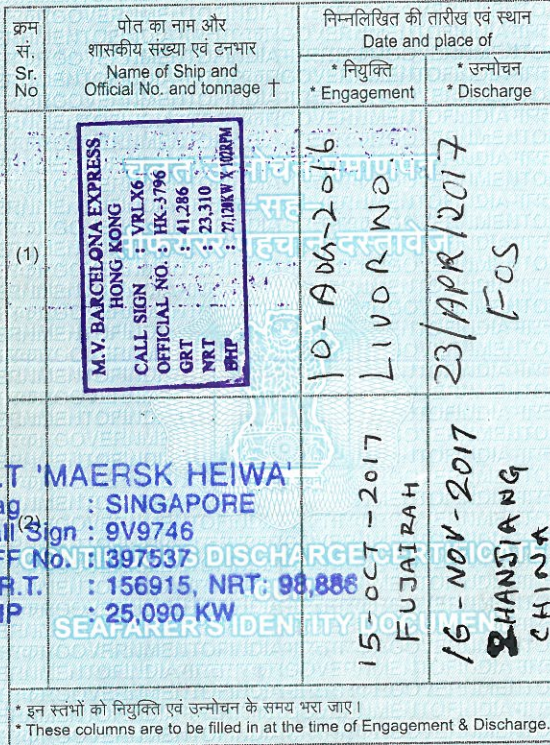 क्रम
सं.
Sr.
No
पोत का नाम और
शासकीय संख्या एवं टनभार
Name of Ship and
Official No. and tonnage †
निम्नलिखित की तारीख एवं स्थान
Date and place of
* नियुक्ति
* Engagement
* उन्मोचन
* Discharge
(1)
M.V. BARCELONA EXPRESS
HONG KONG
CALL SIGN : VRLX6
OFFICIAL NO. : HK-3796
GRT : 41,286
NRT : 23,310
BHP : 27,120KW X 102RPM
10-AUG-2016
LIVORNO
23/APR/2017
FOS
(2)
.T 'MAERSK HEIWA'
ag : SINGAPORE
all Sign : 9V9746
FF No. : 397537
R.T. : 156915, NRT: 98,886
HP : 25,090 KW
15-OCT-2017
FUJAIRAH
16-NOV-2017
ZHANJIANG
CHINA
SEAFARER'S IDENTITY DOCUMENT
* इन स्तंभों को नियुक्ति एवं उन्मोचन के समय भरा जाए।
* These columns are to be filled in at the time of Engagement & Discharge.